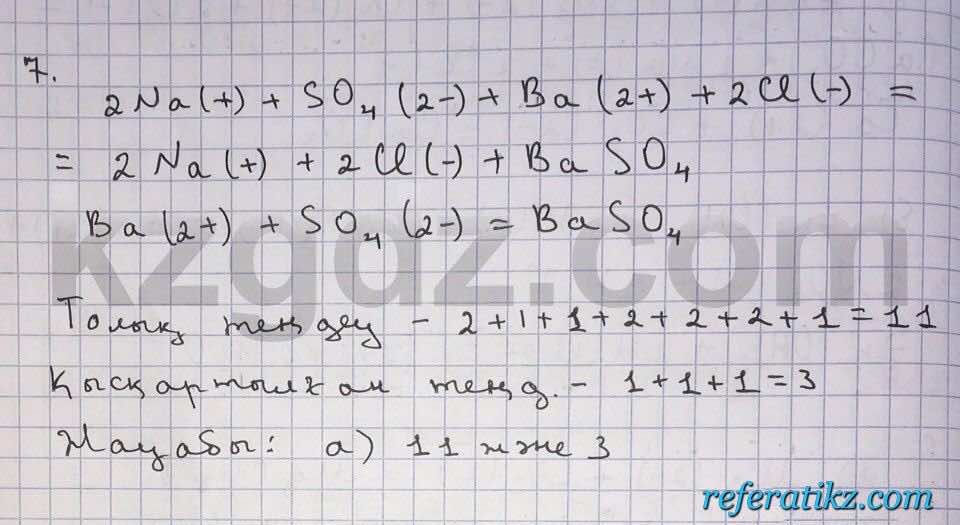 7.
2Na(+) + SO₄(2-) + Ba(2+) + 2Cl(-) =
= 2Na(+) + 2Cl(-) + BaSO₄
Ba(2+) + SO₄(2-) = BaSO₄
kzgdz.com
Толық теңдеу - 2+1+1+2+2+2+1=11
Қысқартылған теңд. - 1+1+1=3
Жауабы: а) 11 және 3
referatikz.com